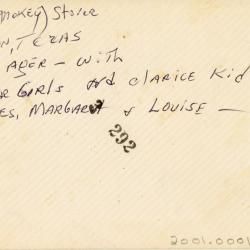 (Smokey) Stover
N, TEXAS
AGER - WITH
R GIRLS and CLARICE Kid
ES, MARGARET & LOUISE -
292
2001.0001